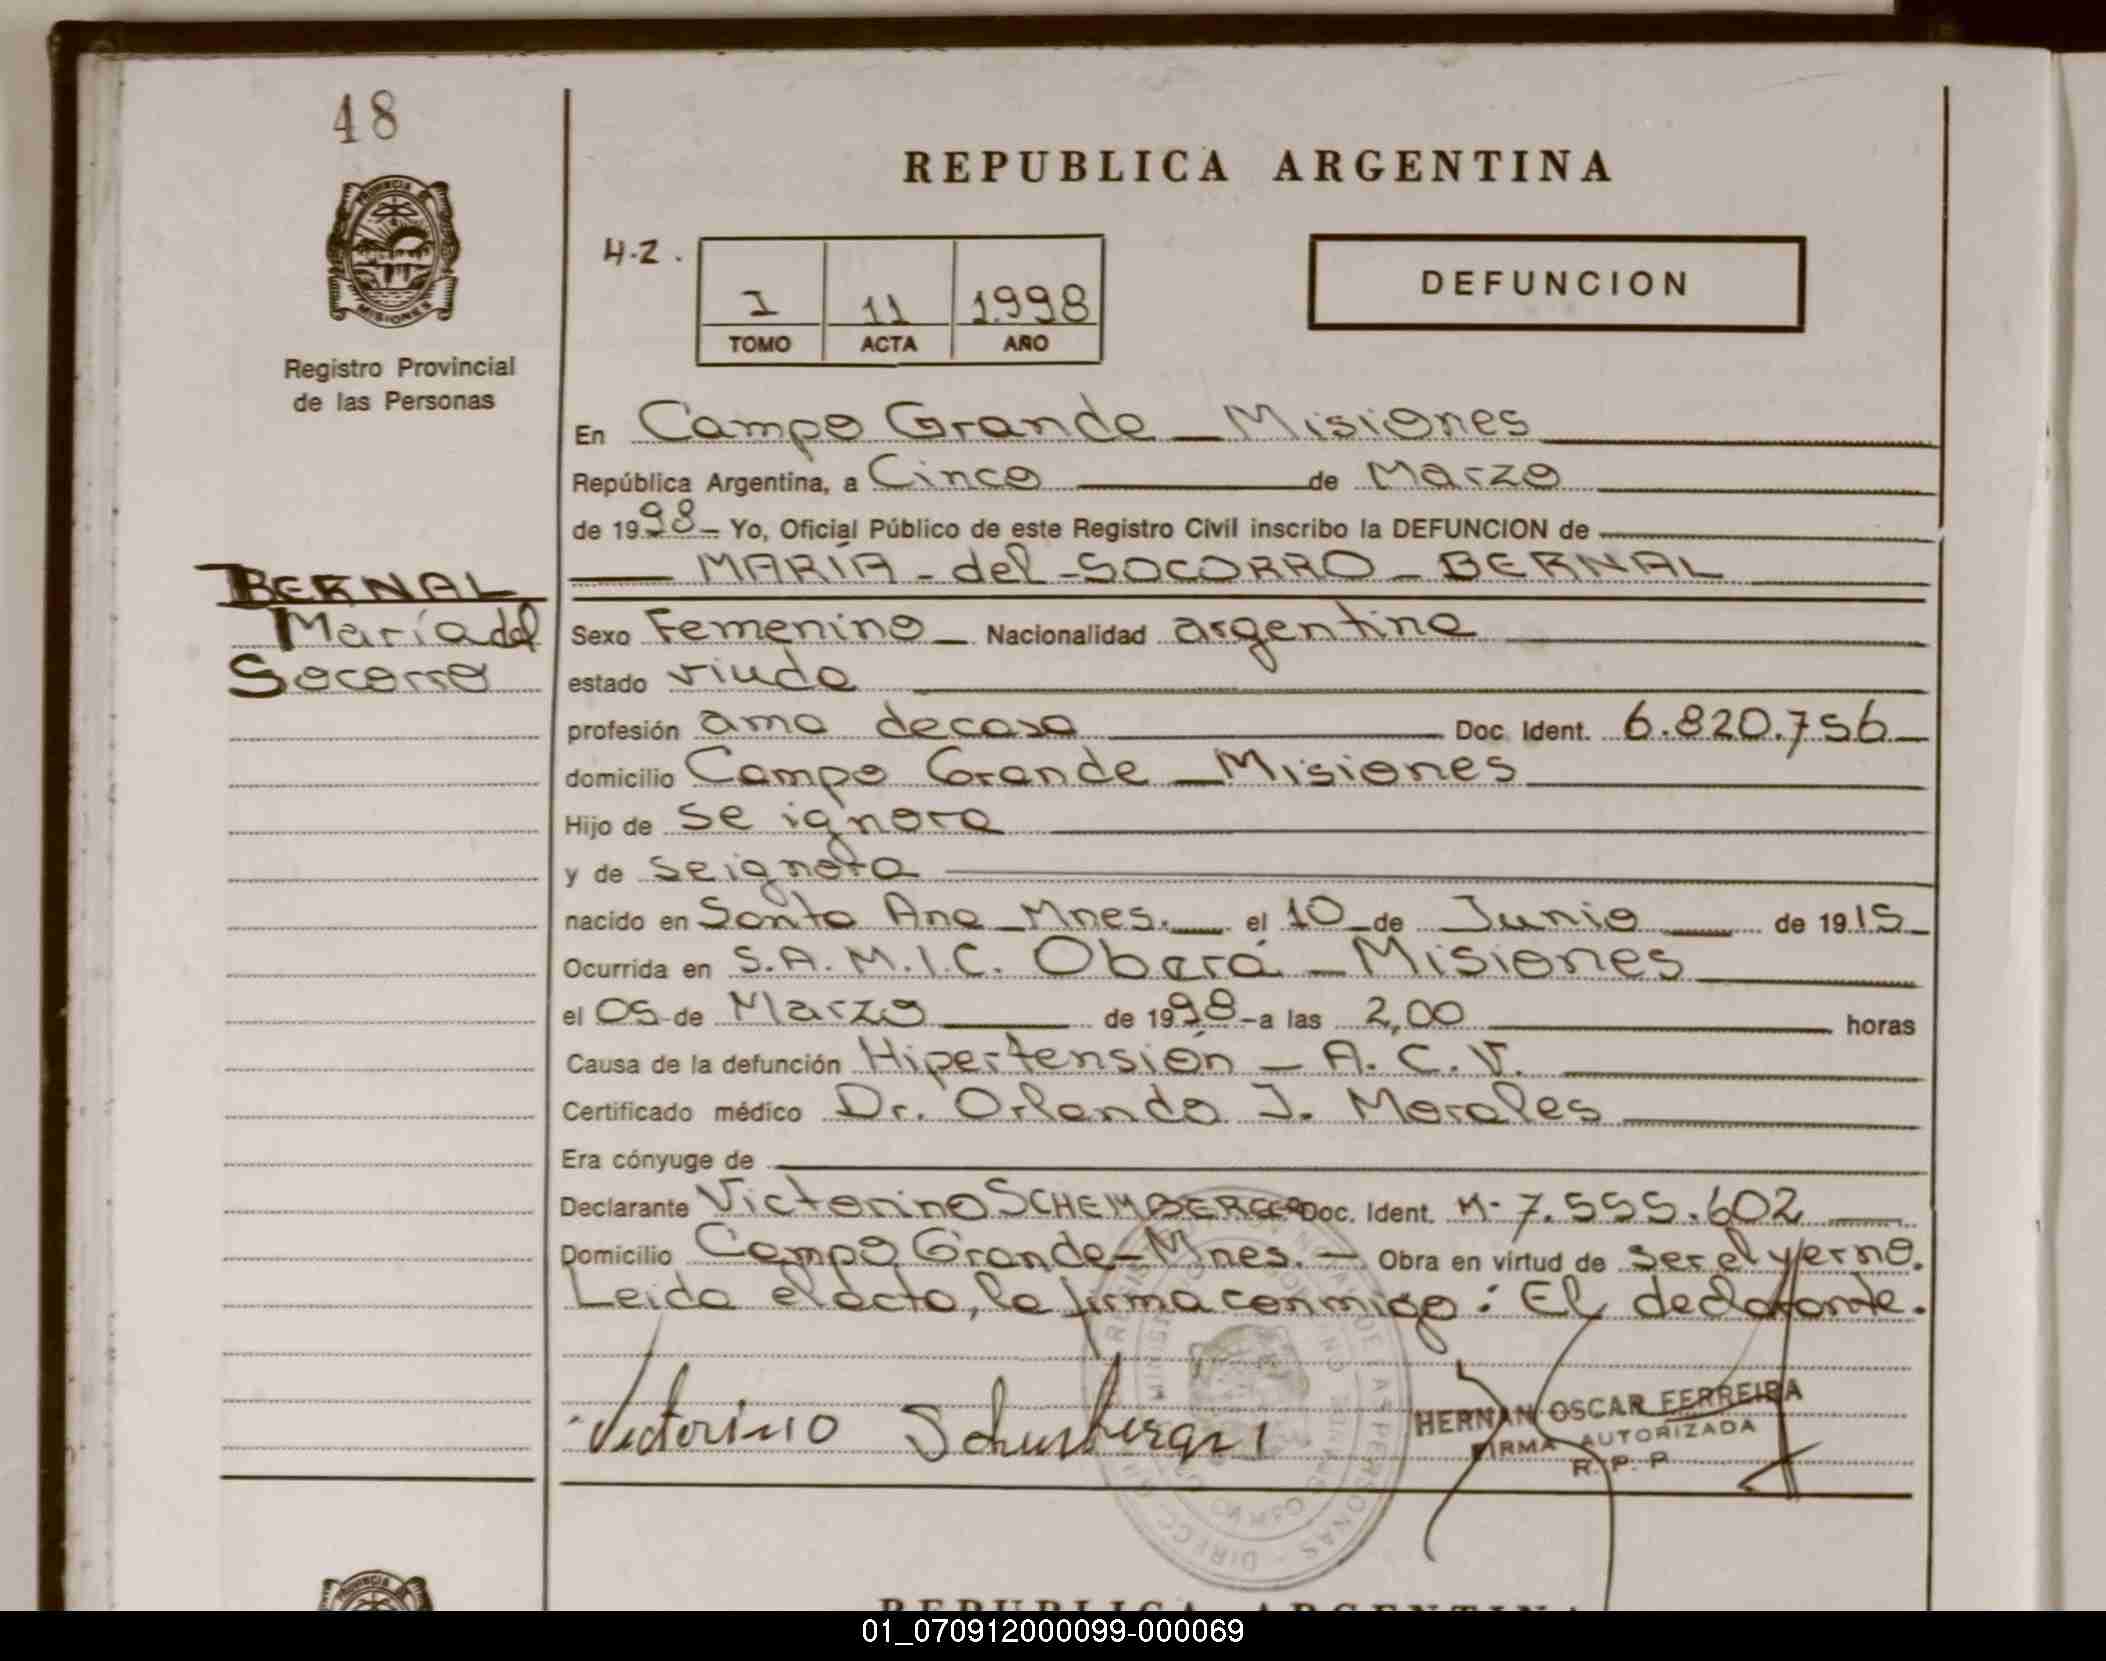 48
REPUBLICA ARGENTINA
4-2.
I 11 1.998
TOMO ACTA AÑO
DEFUNCION
PROVINCIA DE
MISIONES
Registro Provincial
de las Personas
En Campo Grande - Misiones
República Argentina, a Cinco de Marzo
de 1998 - Yo, Oficial Público de este Registro Civil inscribo la DEFUNCION de
MARÍA - del - SOCORRO - BERNAL
BERNAL
María del
Socorro
Sexo Femenino - Nacionalidad argentina
estado viuda
profesión ama de casa Doc. Ident. 6.820.756
domicilio Campo Grande - Misiones
Hijo de se ignora
y de se ignora
nacido en Santa Ana - Mnes. el 10 de Junio de 1915
Ocurrida en S.A.M.I.C. Oberá - Misiones
el 05 de Marzo de 1998 - a las 2,00 horas
Causa de la defunción Hipertensión - A.C.V.
Certificado médico Dr. Orlando J. Morales
Era cónyuge de
Declarante Victorino SCHEMBERGER Doc. Ident. M- 7.555.602
Domicilio Campo Grande - Mnes. - Obra en virtud de ser el yerno.
Leida el acta, la firma conmigo: El declarante.
Victorino
HERNAN OSCAR FERREIRA
FIRMA AUTORIZADA
R. P. P.
REPUBLICA ARGENTINA
01_070912000099-000069